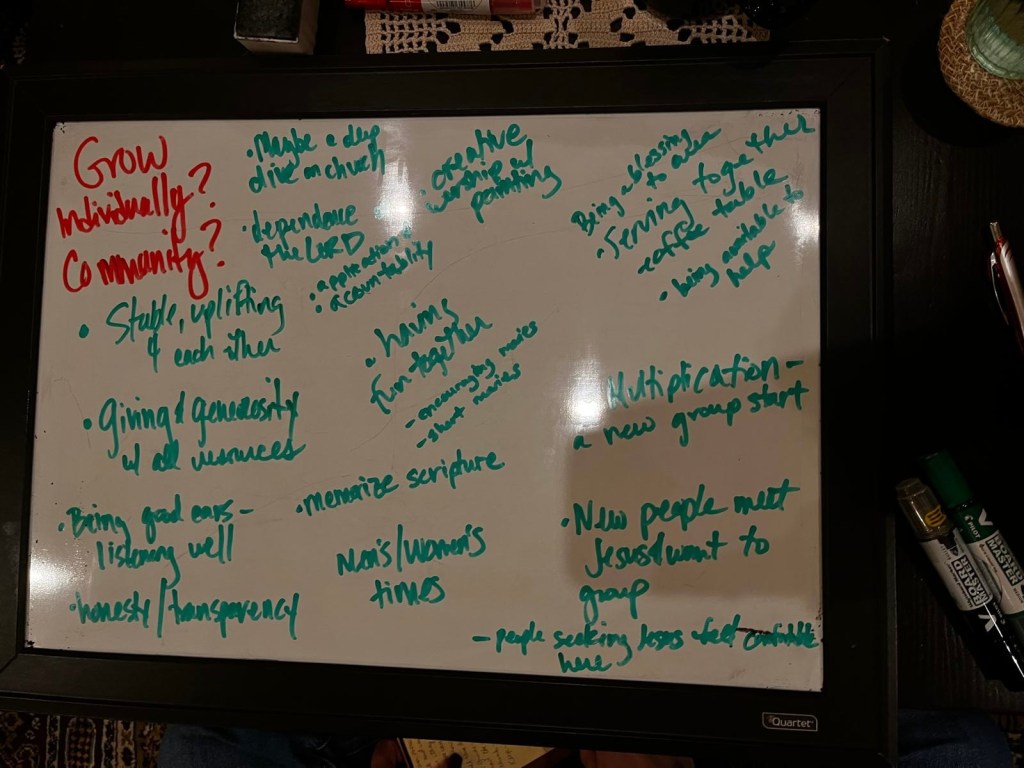 Grow
Individually?
Community?
• Stable, uplifting
& each other
• Giving & generosity
w/ all resources
• Being good ears –
listening well
• honesty/transparency
• Maybe a deep
dive on church
• dependance
the LORD
• application &
accountability
• creative
worship w/
painting
• having
fun together
– encouraging movies
– short movies
• Memorize scripture
Men's/Women's
times
Being a blessing
to area
• Serving together
– coffee table
• being available to
help
Multiplication –
a new group start
• New people meet
Jesus & want to
group
– people seeking Jesus feel comfortable
here
Quartet
BOARD
MASTER
PILOT
BOARD
MASTER